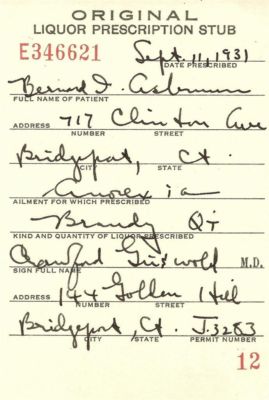 ORIGINAL
LIQUOR PRESCRIPTION STUB
E346621 Sept. 11, 1931
DATE PRESCRIBED
Bernard I.
FULL NAME OF PATIENT
717 Clinton Ave
ADDRESS NUMBER STREET
Bridgeport, Ct.
CITY STATE
Anorexia
AILMENT FOR WHICH PRESCRIBED
Brandy Qt
KIND AND QUANTITY OF LIQUOR PRESCRIBED
Crawford Griswold M.D.
SIGN FULL NAME
144 Golden Hill
ADDRESS NUMBER STREET
Bridgeport, Ct. J.3283
CITY, STATE PERMIT NUMBER
12